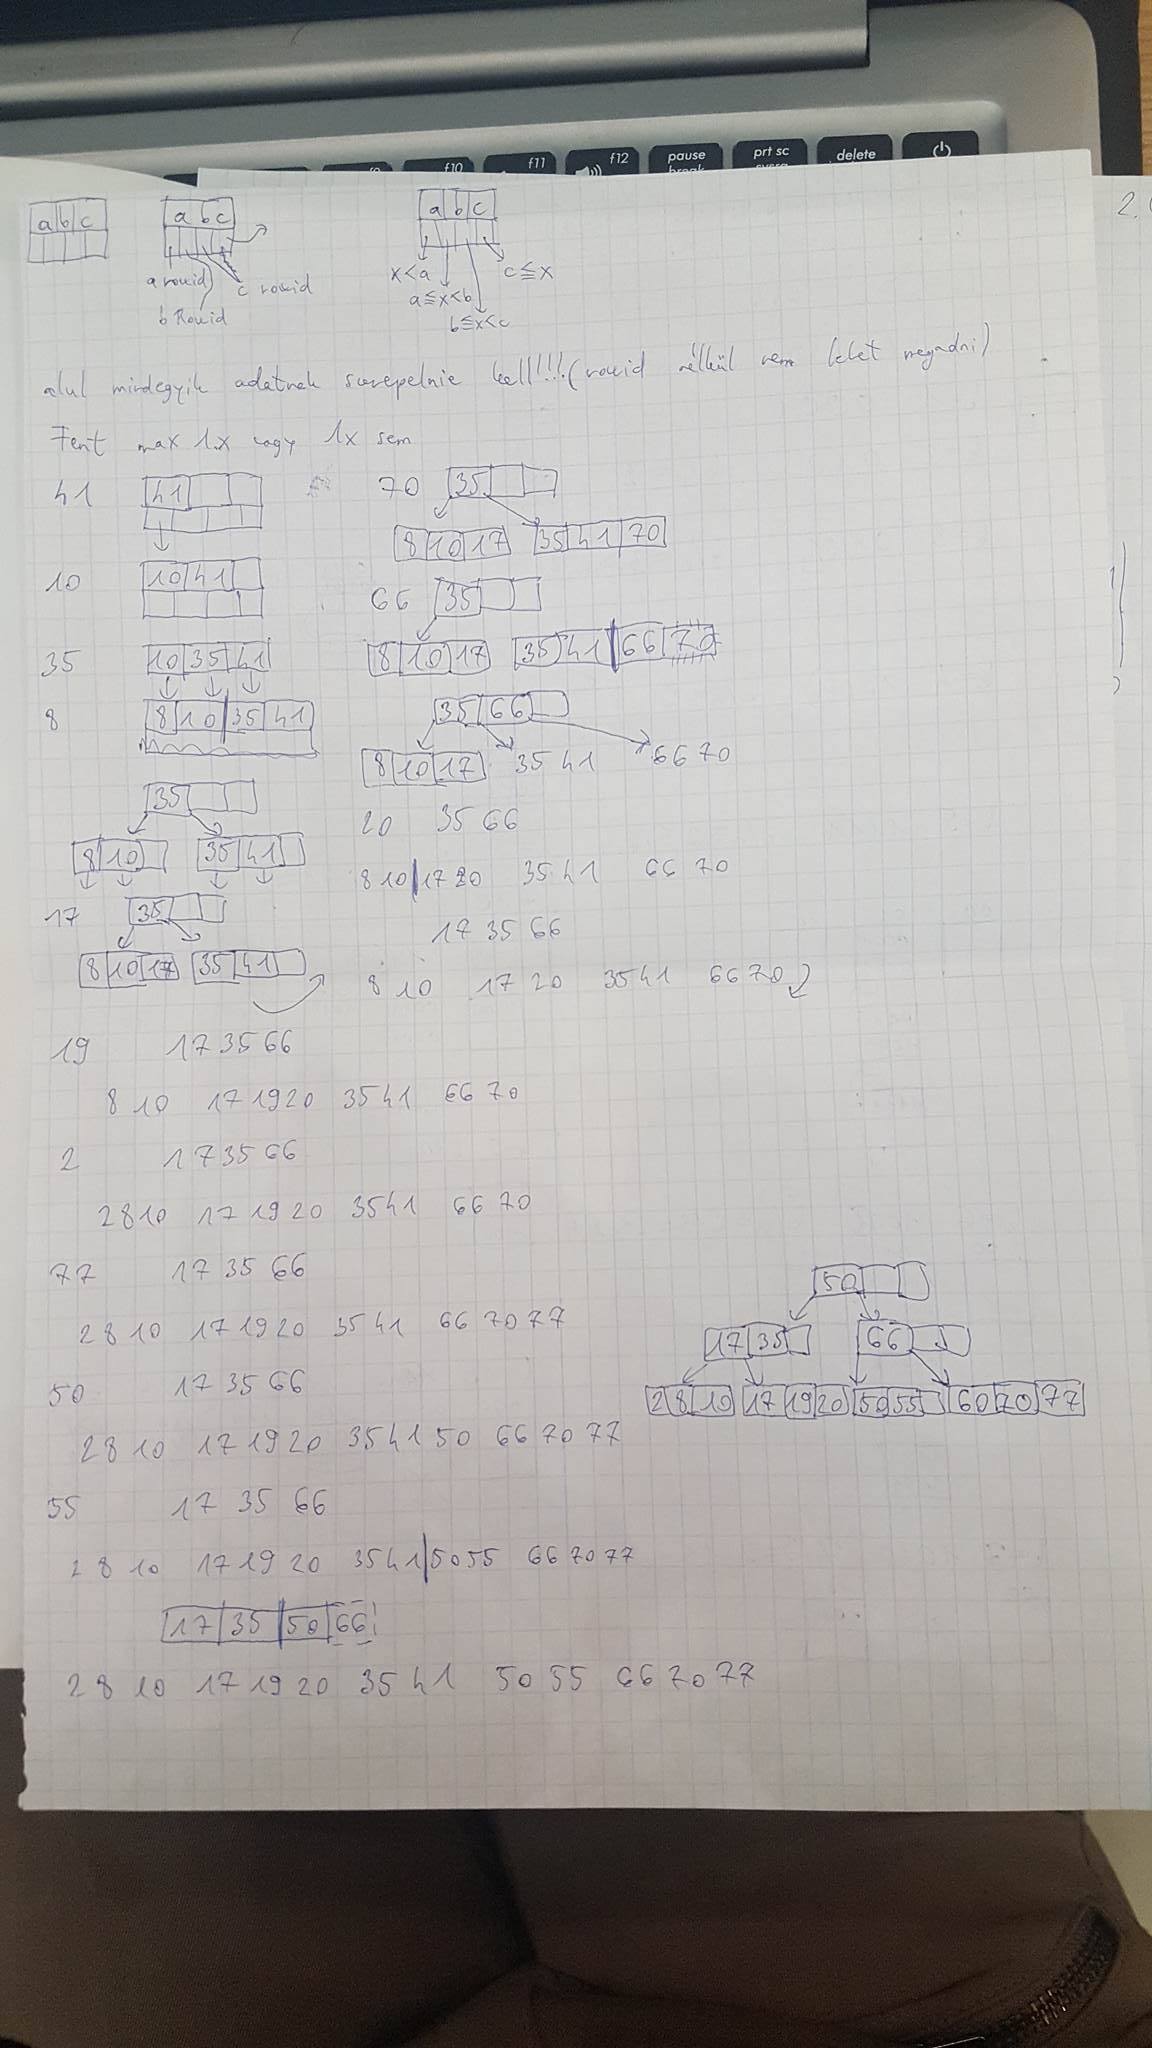 f10 f11 f12 pause prt sc delete
break
2.
a b c
a b c
a b c
a rowid
c rowid
b Rowid
x<a
c≤x
a≤x<b
b≤x<c
alul mindegyik adatnak szerepelnie kell!!! (rowid nélkül nem lehet megadni)
Fent max 1x vagy 1x sem
41
41
10
10 41
35
10 35 41
8
8 10 35 41
35
8 10 35 41
17
35
8 10 17 35 41
70
35
8 10 17 35 41 70
66
35
8 10 17 35 41 66 70
35 66
8 10 17 35 41 66 70
20 35 66
8 10 | 17 20 35 41 66 70
17 35 66
8 10 17 20 35 41 66 70
19 17 35 66
8 10 17 19 20 35 41 66 70
2 17 35 66
2 8 10 17 19 20 35 41 66 70
77 17 35 66
2 8 10 17 19 20 35 41 66 70 77
50 17 35 66
2 8 10 17 19 20 35 41 50 66 70 77
55 17 35 66
2 8 10 17 19 20 35 41 | 50 55 66 70 77
17 35 50 66
2 8 10 17 19 20 35 41 50 55 66 70 77
50
17 35 66
2 8 10 17 19 20 50 55 60 70 77